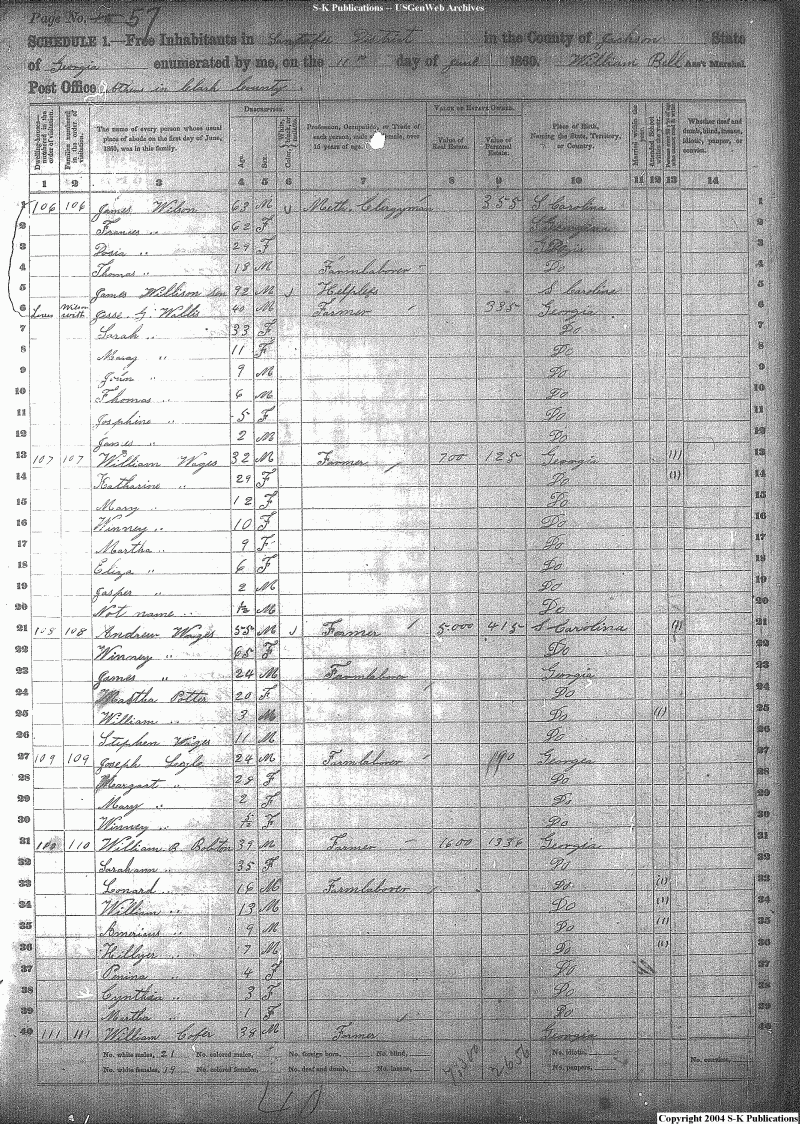 S-K Publications -- USGenWeb Archives
Page No. 57
SCHEDULE 1.—Free Inhabitants in District in the County of Jackson State
of Georgia enumerated by me, on the 11th day of June 1860. William Bell Ass't Marshal.
Post Office Athens in Clark County
Dwelling-houses—numbered in the order of visitation.
Families numbered in the order of visitation.
The name of every person whose usual place of abode on the first day of June, 1860, was in this family.
DESCRIPTION.
Age.
Sex.
Color, White, black, or mulatto.
Profession, Occupation, or Trade of each person, male and female, over 15 years of age.
VALUE OF ESTATE OWNED.
Value of Real Estate.
Value of Personal Estate.
Place of Birth, Naming the State, Territory, or Country.
Married within the year.
Attended School within the year.
Whether deaf and dumb, blind, insane, idiotic, pauper, or convict.
1 2 3 4 5 6 7 8 9 10 11 12 13 14
1 106 106 James Wilson 63 M Meth. Clergyman 355 S Carolina 1
2 Frances " 62 F 2
3 Dosia " 29 F Georgia 3
4 Thomas " 18 M Farmlaborer Do 4
5 James Willison 92 M Helpless S Carolina 5
6 Jesse G Wallis 40 M Farmer 335 Georgia 6
7 Sarah " 33 F Do 7
8 Maray " 11 F Do 8
9 John " 9 M Do 9
10 Thomas " 6 M Do 10
11 Josphine " 5 F Do 11
12 James " 2 M Do 12
13 107 107 William Wages 32 M Farmer 700 125 Georgia (1) 13
14 Katharine " 29 F Do (1) 14
15 Mary " 12 F Do 15
16 Winney " 10 F Do 16
17 Martha " 9 F Do 17
18 Eliza " 6 F Do 18
19 Jasper " 2 M Do 19
20 Not name " M Do 20
21 108 108 Andrew Wages 55 M Farmer 5000 415 S Carolina (1) 21
22 Winney " 65 F Do 22
23 James " 24 M Farmlabor Georgia 23
24 Martha Potter 20 F Do 24
25 William " 3 M Do (1) 25
26 Stephen Wages 11 M Do 26
27 109 109 Joseph 24 M Farmlaborer 190 Georgia 27
28 Margart " 28 F Do 28
29 Mary " 2 F Do 29
30 Winney " F Do 30
31 110 110 William B Bolston 39 M Farmer 1600 1336 Georgia 31
32 Sarahann " 35 F Do 32
33 Leonard " 16 M Farmlaborer Do (1) 33
34 William " 13 M Do (1) 34
35 Americus " 9 M Do (1) 35
36 Hillyer " 7 M Do (1) 36
37 Perina " 4 F Do 37
38 Cynthia " 3 F Do 38
39 Martha " 1 F Do 39
40 111 111 William Cofer 38 M Farmer Georgia 40
No. white males, 21 No. colored males, No. foreign born, No. blind, No. idiotic,
No. white females, 19 No. colored females, No. deaf and dumb, No. insane, 7,300 2656 No. paupers, No. convicts,
40
Copyright 2004 S-K Publications